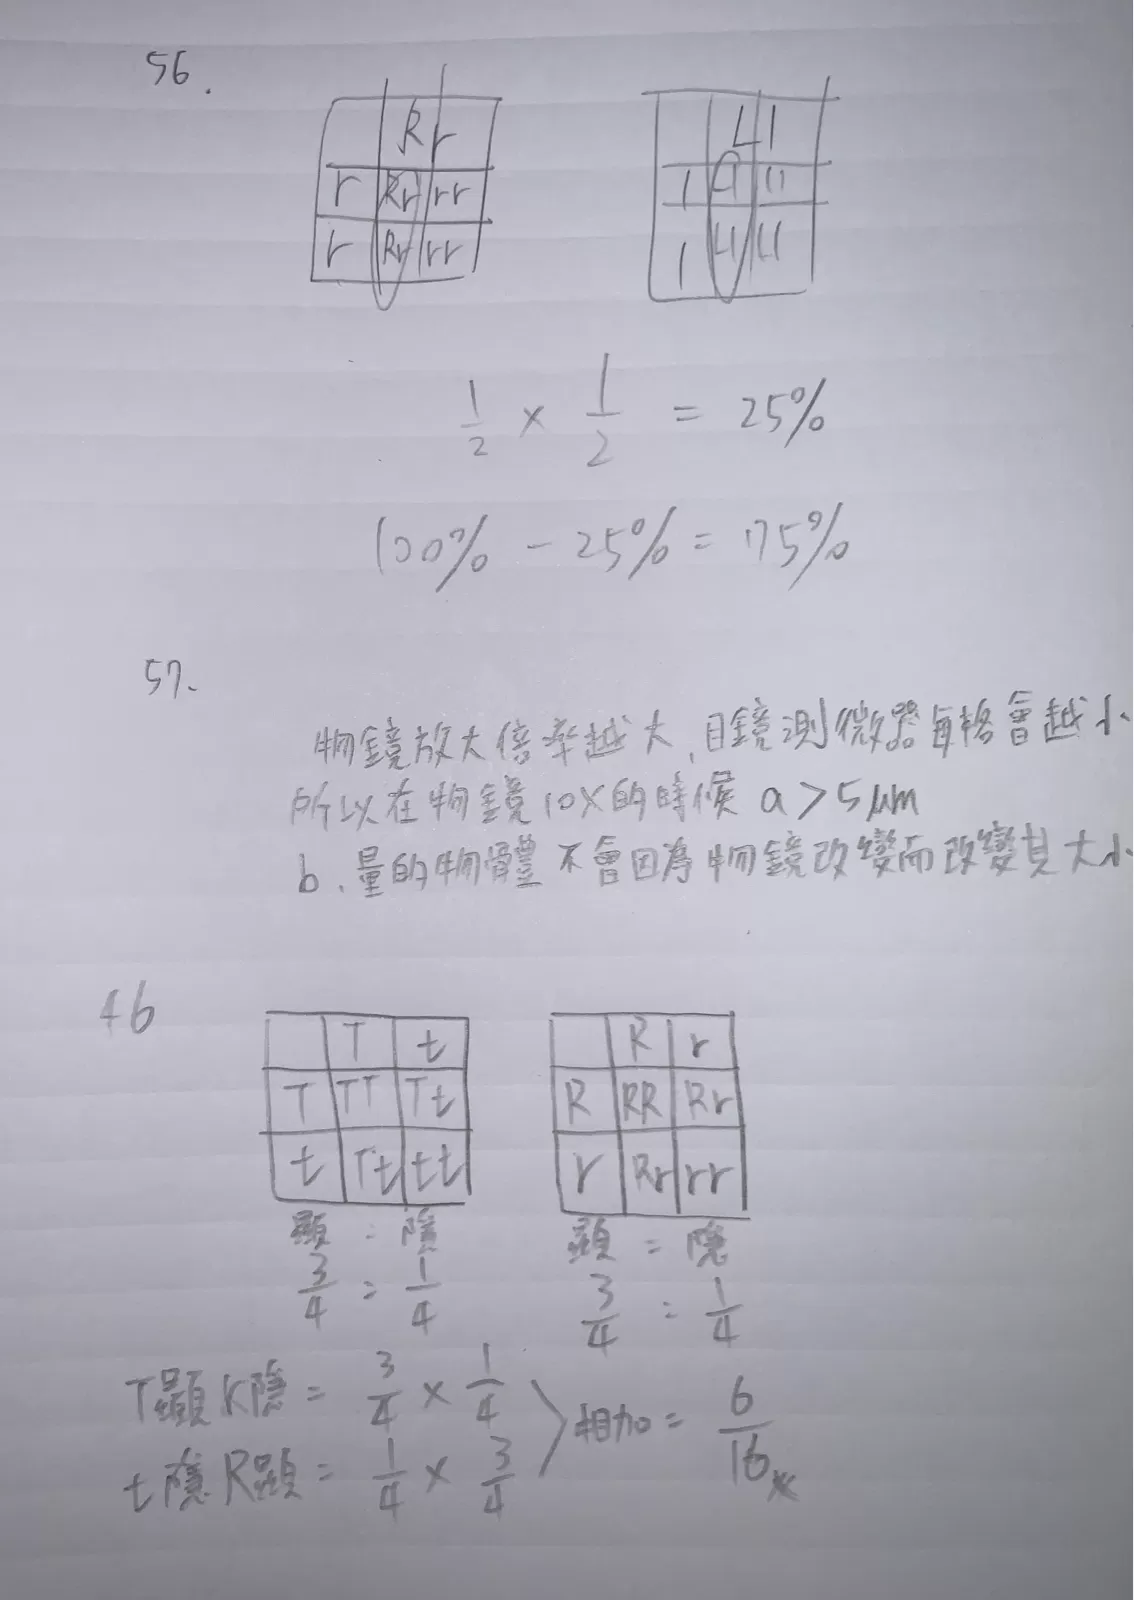 56.
R r
r Rr rr
r Rr rr
L l
l Ll ll
l Ll ll
1/2 × 1/2 = 25%
100% - 25% = 75%
57.
物鏡放大倍率越大,目鏡測微器每格會越小
所以在物鏡10X的時候 a > 5μm
b、量的物體不會因為物鏡改變而改變其大小
46
T t
T TT Tt
t Tt tt
顯 : 隱
3/4 : 1/4
R r
R RR Rr
r Rr rr
顯 = 隱
3/4 : 1/4
T顯 R隱 = 3/4 × 1/4
t隱 R顯 = 1/4 × 3/4
相加 = 6/16